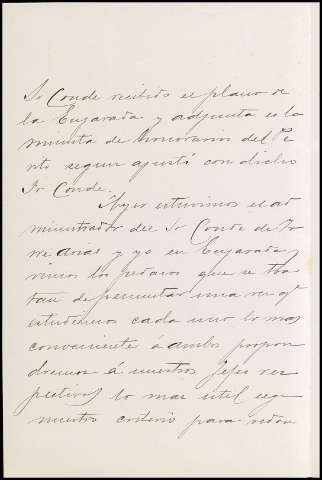 Sr Conde recibido el plano de
la Enjarada y adjunta es la
minuta de honorarios del Pe
rito segun ajustó con dicho
Sr Conde.
Ayer estuvimos el ad
ministrador del Sr Conde de To
rre Arias y yo en Enjarada y
vimos los pedazos que se tra
tan de permutar una vez qe
estudiemos cada uno lo mas
conveniente á ambos propon
dremos á nuestros Jefes res
pectivos lo mas util segun
nuestro criterio para